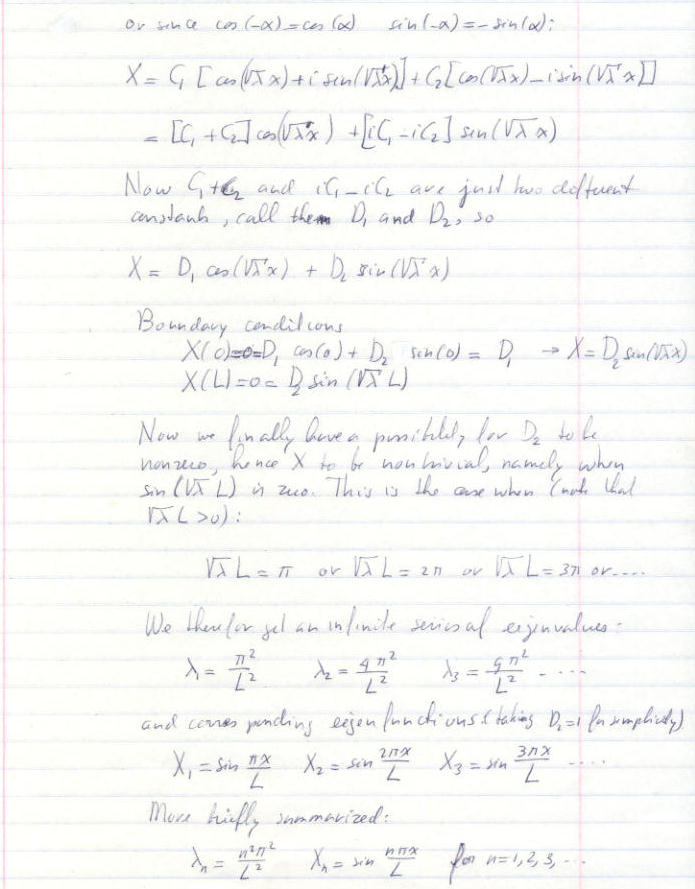 or since cos(-α)=cos(α) sin(-α)=-sin(α):
X = C₁ [cos(√λ x)+i sin(√λ x)] + C₂[cos(√λ x)-i sin(√λ x)]
= [C₁ + C₂] cos(√λ x) + [iC₁ - iC₂] sin(√λ x)
Now C₁+C₂ and iC₁-iC₂ are just two different
constants, call them D₁ and D₂, so
X = D₁ cos(√λ x) + D₂ sin(√λ x)
Boundary conditions
X(0)=0=D₁ cos(0) + D₂ sin(0) = D₁ → X = D₂ sin(√λ x)
X(L)=0= D₂ sin(√λ L)
Now we finally have a possibility for D₂ to be
nonzero, hence X to be nontrivial, namely when
sin(√λ L) is zero. This is the case when (note that
√λ L >0):
√λ L = π or √λ L = 2π or √λ L = 3π or ....
We therefor get an infinite series of eigenvalues:
λ₁ = π²/L² λ₂ = 4π²/L² λ₃ = 9π²/L² ....
and corresponding eigenfunctions (taking D₂=1 for simplicity)
X₁ = sin πx/L X₂ = sin 2πx/L X₃ = sin 3πx/L ....
More briefly summarized:
λₙ = n²π²/L² Xₙ = sin nπx/L for n=1,2,3,...